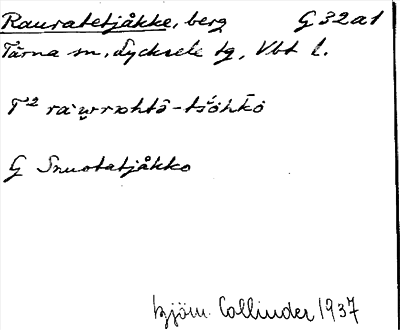 Rauratetjåkke, berg G 32a1
Tärna sn, Lycksele tg, Vbt l.
T² ra·w̬rrɒhtə̂-tšŏ́hk̄ŏ
G Snuotatjåkko
Björn Collinder 1937